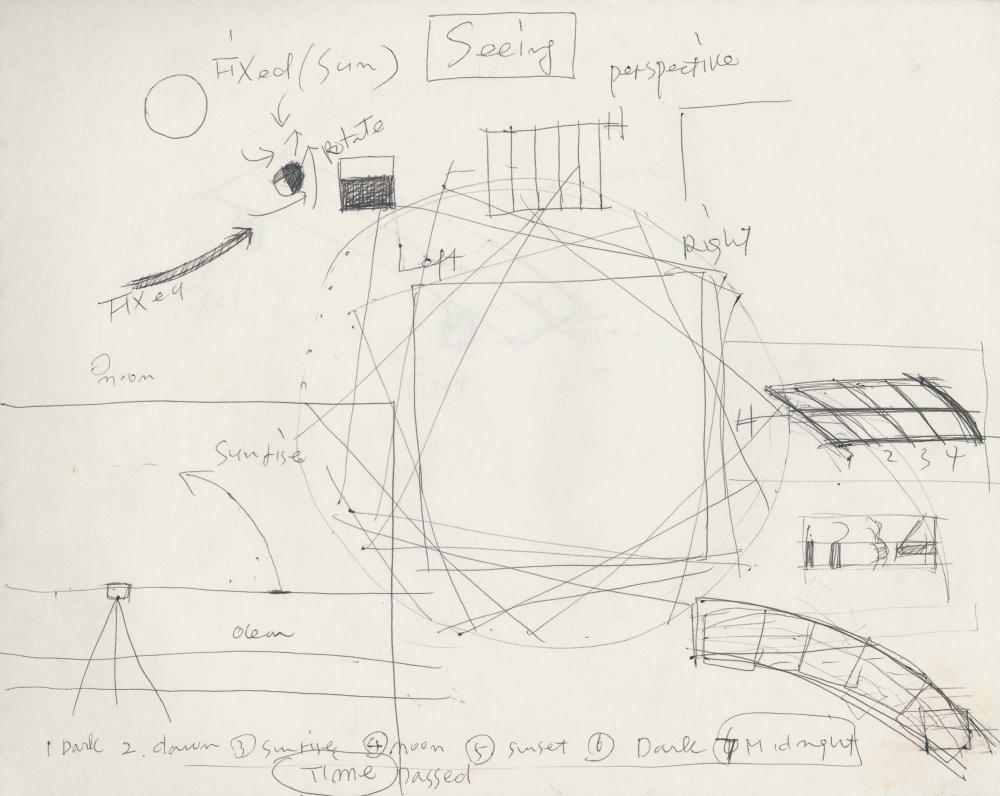 Seeing
Fixed (Sun)
perspective
Rotate
H
Left
Right
Fixed
noon
H
Sunrise
1 2 3 4
1 2 3 4
Ocean
1 Dark 2. dawn ③ sunrise ④ noon ⑤ sunset ⑥ Dark 7 Midnight
Time passed